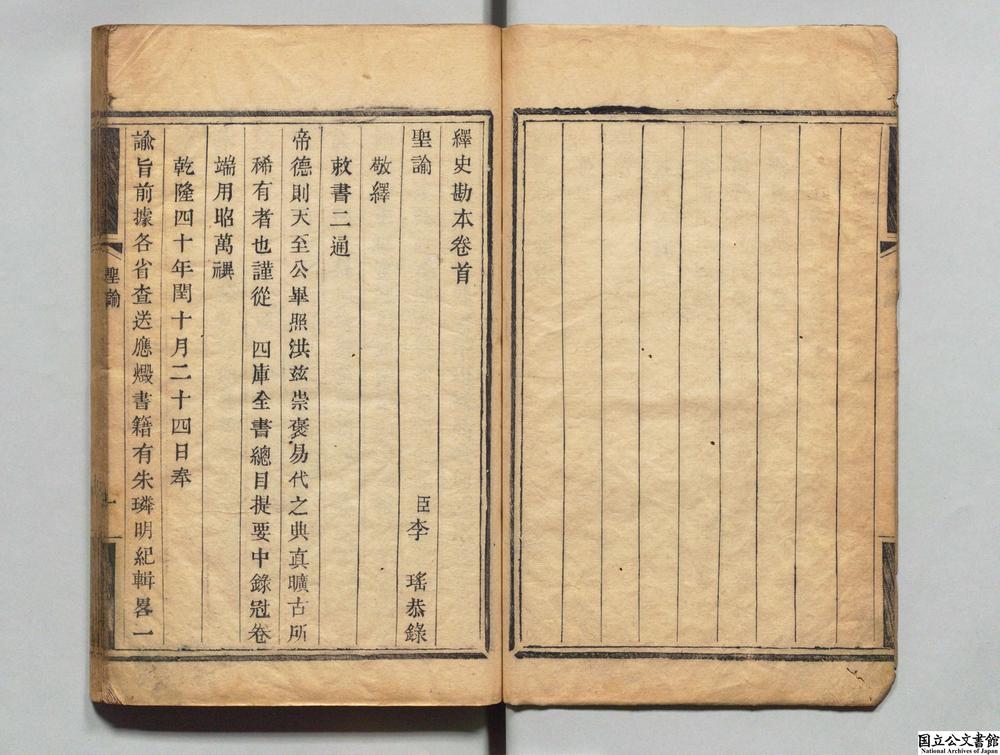 繹史勘本卷首
聖諭 臣李 瑤恭錄
敬繹
敕書二通
帝德則天至公畢照洪兹崇褒易代之典真曠古所
稀有者也謹從 四庫全書總目提要中錄冠卷
端用昭萬禩
乾隆四十年閏十月二十四日奉
諭旨前據各省查送應燬書籍有朱璘明紀輯畧一
聖諭
一
国立公文書館
National Archives of Japan